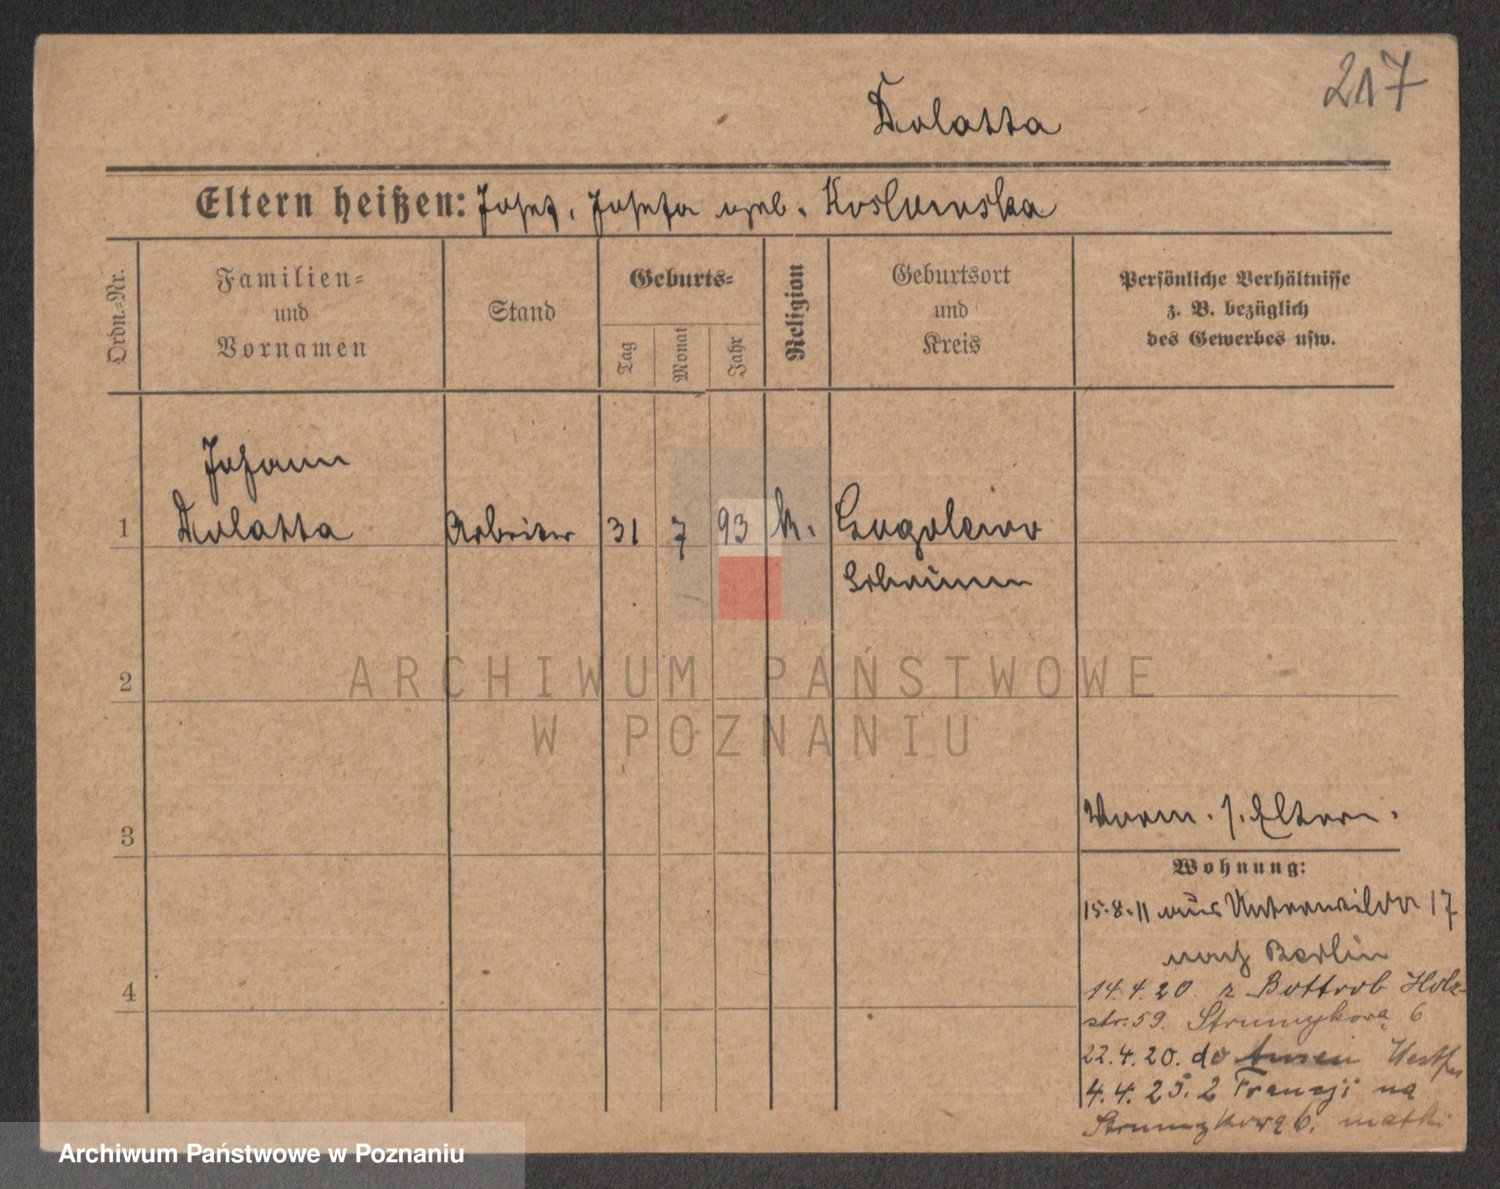 217
Dolatta
Eltern heißen: Josef, Josefa geb. Koslowska
Ordn.-Nr.
Familien-
und
Vornamen
Stand
Geburts-
Tag
Monat
Jahr
Religion
Geburtsort
und
Kreis
Persönliche Verhältnisse
z. B. bezüglich
des Gewerbes usw.
Johann
1 Dolatta Arbeiter 31 7 93 k.
2
3
4
ARCHIWUM PAŃSTWOWE
W POZNANIU
Eltern.
Wohnung:
15.8.11 aus Unterwilda 17
nach Berlin
14.4.20 z Bottrob Holz-
str. 59. Strumykowa 6
22.4.20. do Westf
4.4.25. z Francji na
Strumykową 6. matki
Archiwum Państwowe w Poznaniu